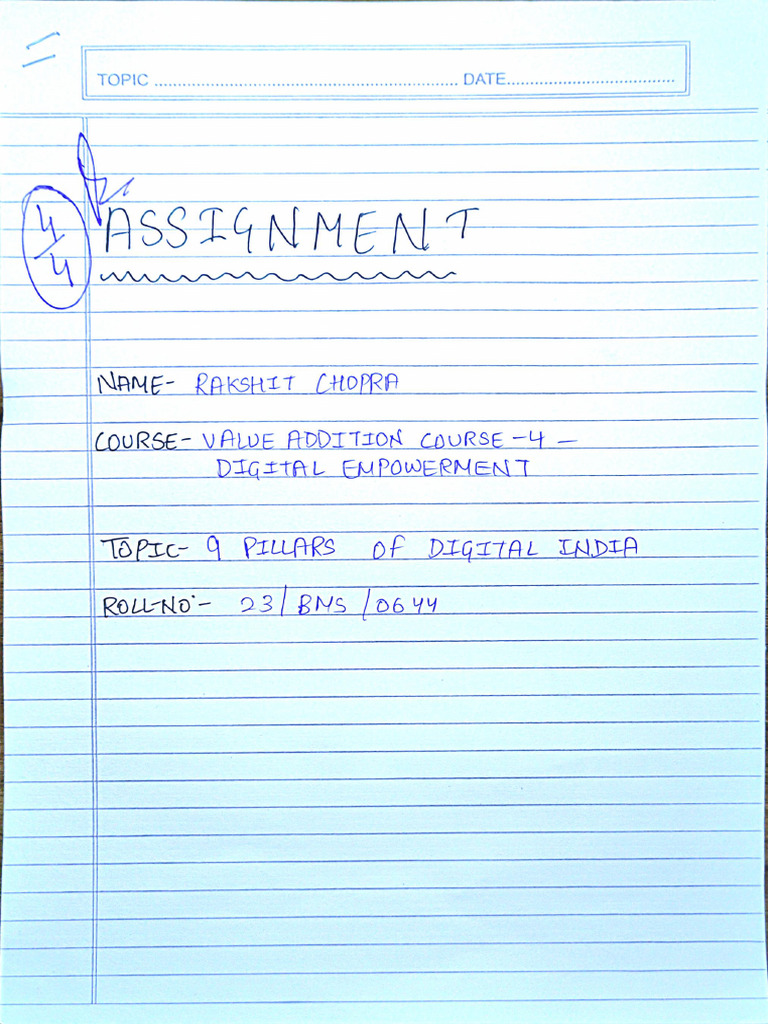 TOPIC ........................................................ DATE................................
4/4
ASSIGNMENT
NAME- RAKSHIT CHOPRA
COURSE- VALUE ADDITION COURSE -4 -
DIGITAL EMPOWERMENT
TOPIC- 9 PILLARS OF DIGITAL INDIA
ROLL-NO:- 23/BMS/0644